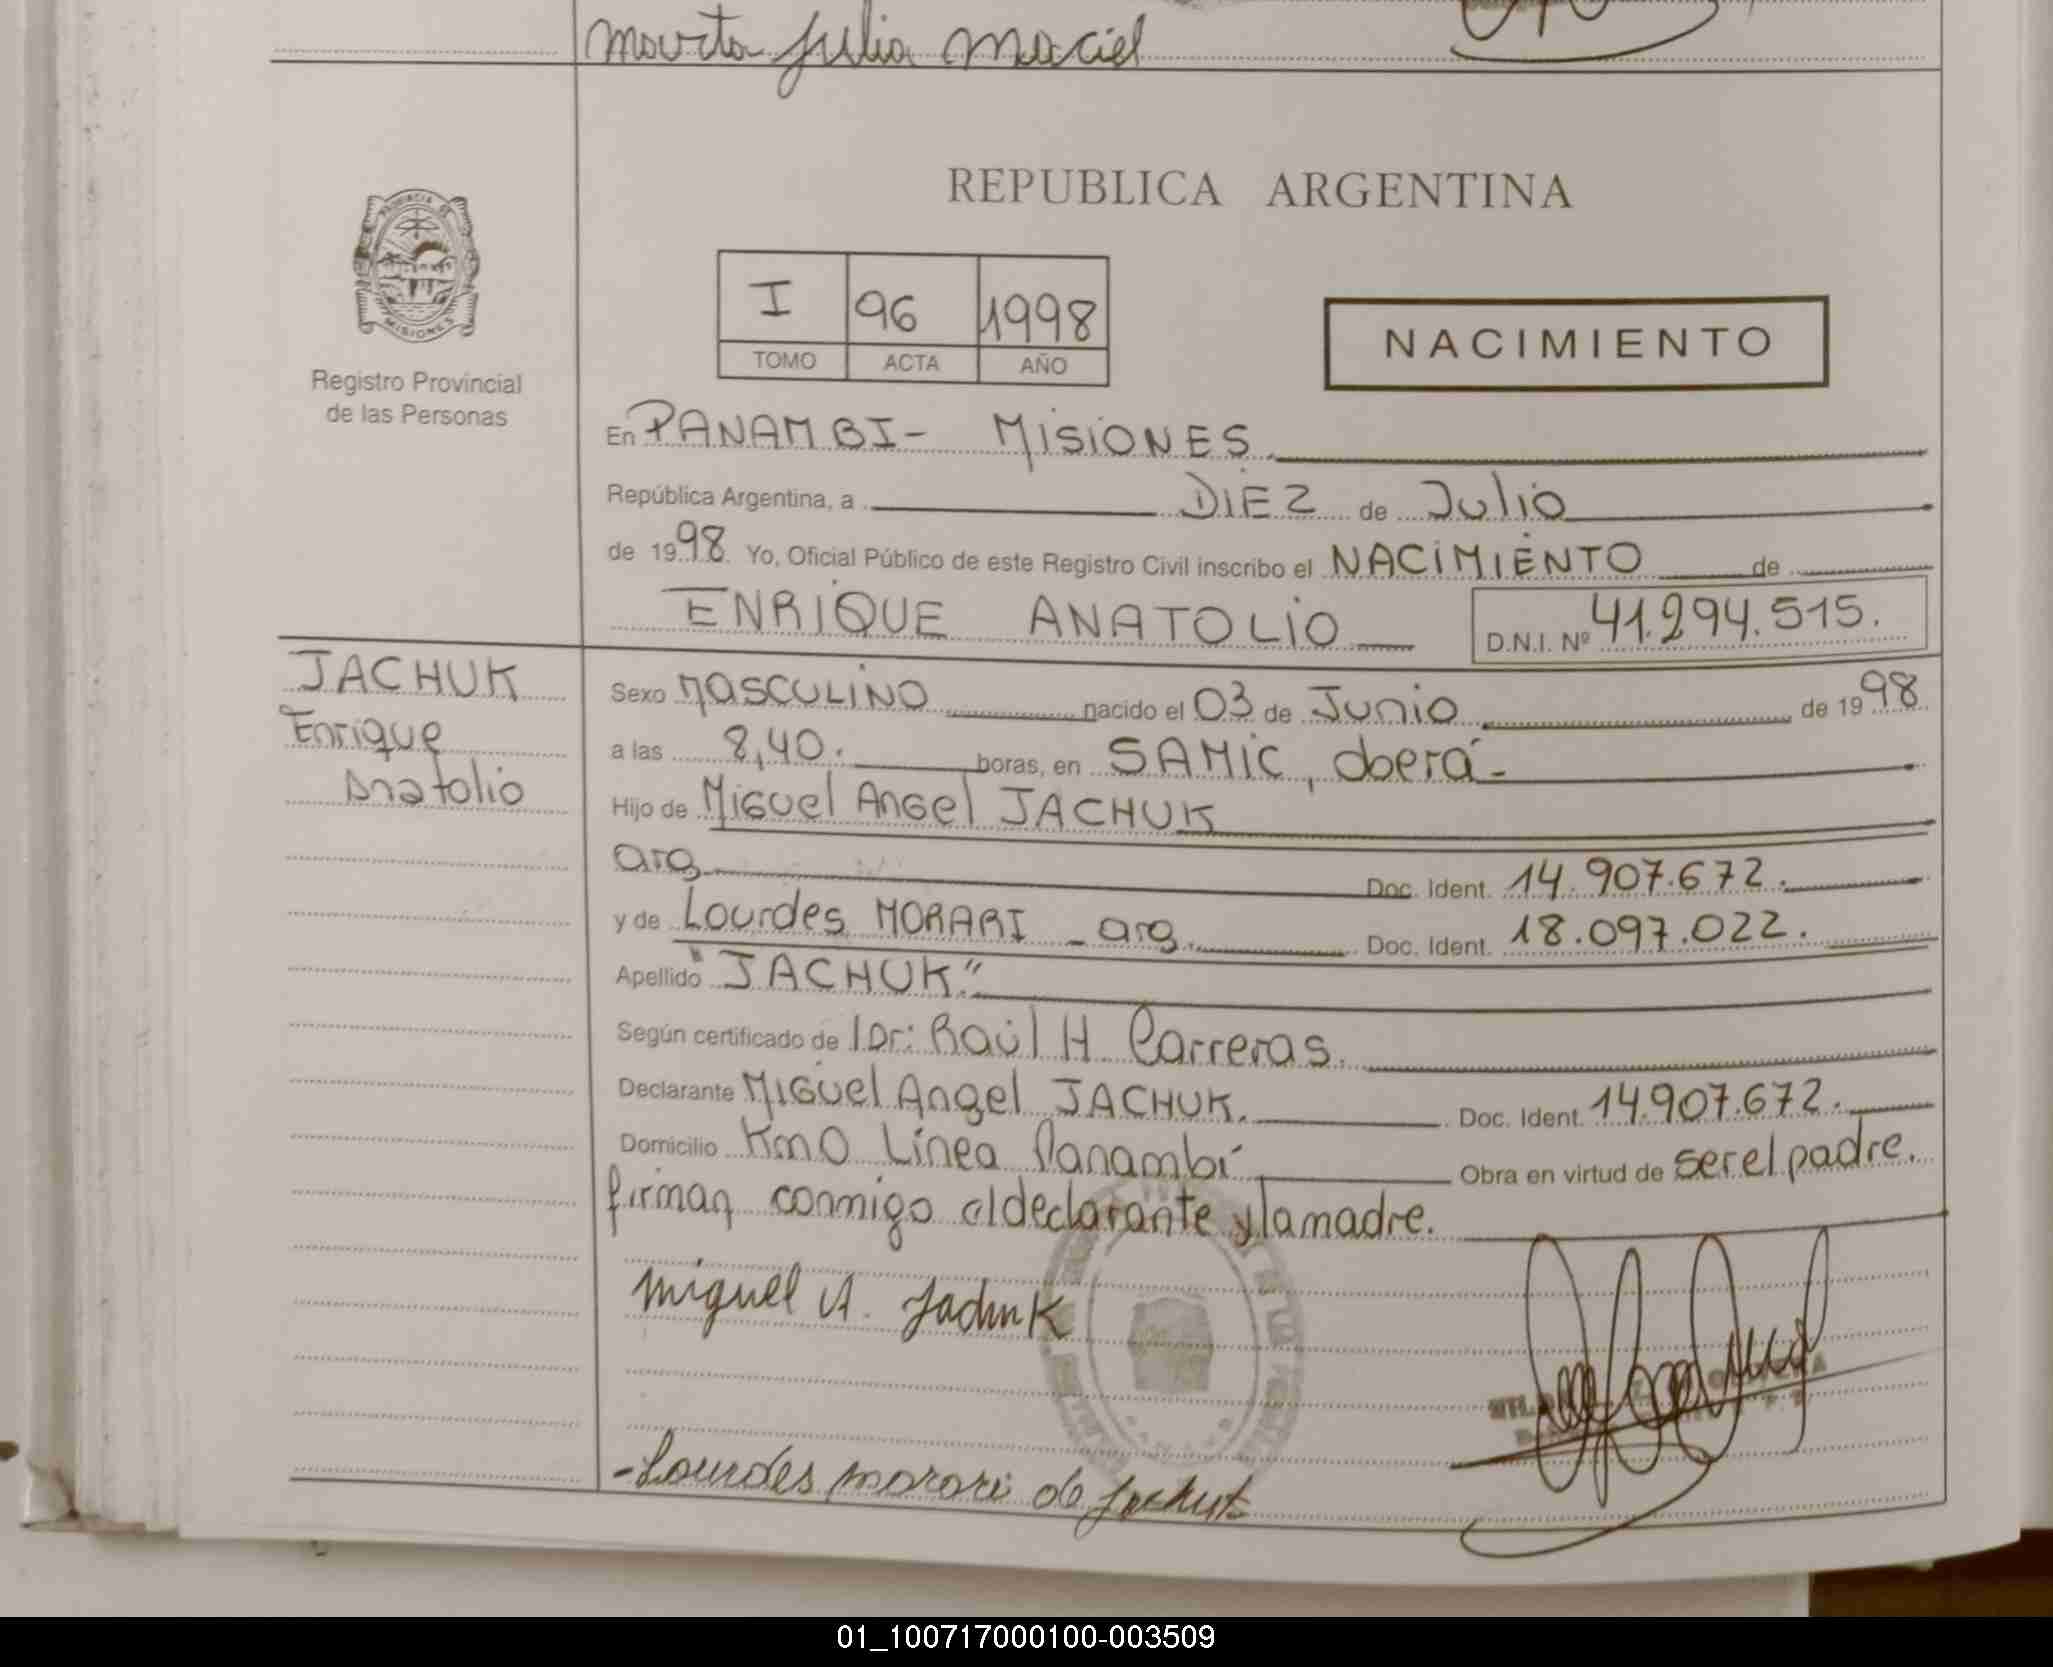 Marta Julia Maciel
PROVINCIA DE
MISIONES
Registro Provincial
de las Personas
REPUBLICA ARGENTINA
I 96 1998
TOMO ACTA AÑO
NACIMIENTO
En PANAMBI - MISIONES
República Argentina, a DIEZ de Julio
de 1998 Yo, Oficial Público de este Registro Civil inscribo el NACIMIENTO de
ENRIQUE ANATOLIO D.N.I. Nº 41.294.515.
JACHUK
Enrique
Anatolio
Sexo MASCULINO nacido el 03 de Junio de 1998
a las 8,40. horas, en SAMIC, oberá -
Hijo de Miguel Angel JACHUK
arg Doc. Ident. 14.907.672.
y de Lourdes MORARI - arg. Doc. Ident. 18.097.022.
Apellido "JACHUK."
Según certificado de Dr: Raúl H. Carreras.
Declarante Miguel Angel JACHUK. Doc. Ident. 14.907.672.
Domicilio Km 0 Línea Panambí Obra en virtud de ser el padre.
firman conmigo el declarante y la madre.
Miguel A. Jachuk
- Lourdes Morari de Jachuk
01_100717000100-003509